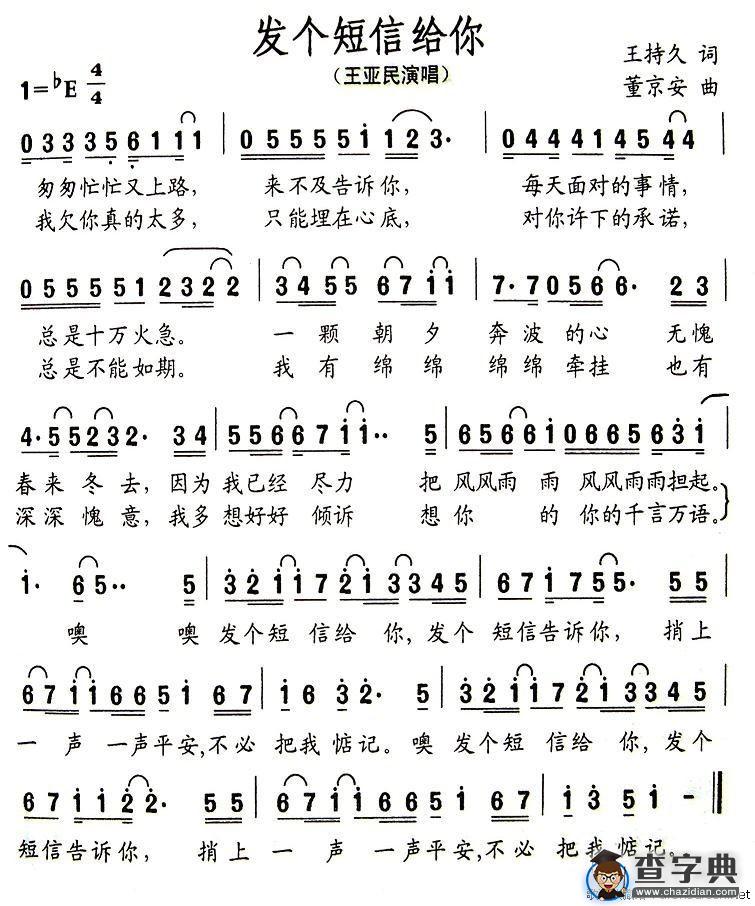 发个短信给你
(王亚民演唱)
王持久 词
董京安 曲
1=♭E 4/4
0 3 3 3 5 6 1 1 1 | 0 5 5 5 5 1 1 2 3· | 0 4 4 4 1 4 5 4 4 |
匆匆忙忙又上路, 来不及告诉你, 每天面对的事情,
我欠你真的太多, 只能埋在心底, 对你许下的承诺,
0 5 5 5 5 1 2 3 2 2 | 3 4 5 5 6 7 1 1 | 7· 7 0 5 6 6· 2 3 |
总是十万火急。 一颗朝夕奔波的心 无愧
总是不能如期。 我有绵绵绵绵牵挂 也有
4· 5 5 2 3 2· 3 4 | 5 5 6 6 7 1 1·· 5 | 6 5 6 6 1 0 6 6 5 6 3 1 |
春来冬去, 因为我已经尽力 把风风雨雨风风雨雨担起。
深深愧意, 我多想好好倾诉 想你的你的千言万语。
1· 6 5·· 5 | 3 2 1 1 7 2 1 3 3 4 5 | 6 7 1 7 5 5· 5 5 |
噢 噢发个短信给你,发个短信告诉你, 捎上
6 7 1 1 6 6 5 1 6 7 | 1 6 3 2· 5 | 3 2 1 1 7 2 1 3 3 4 5 |
一声一声平安,不必把我惦记。噢发个短信给你,发个
6 7 1 1 2 2· 5 5 | 6 7 1 1 6 6 5 1 6 7 | 1 3 5 1 - ‖
短信告诉你, 捎上一声一声平安,不必把我惦记。
查字典
www.chazidian.com